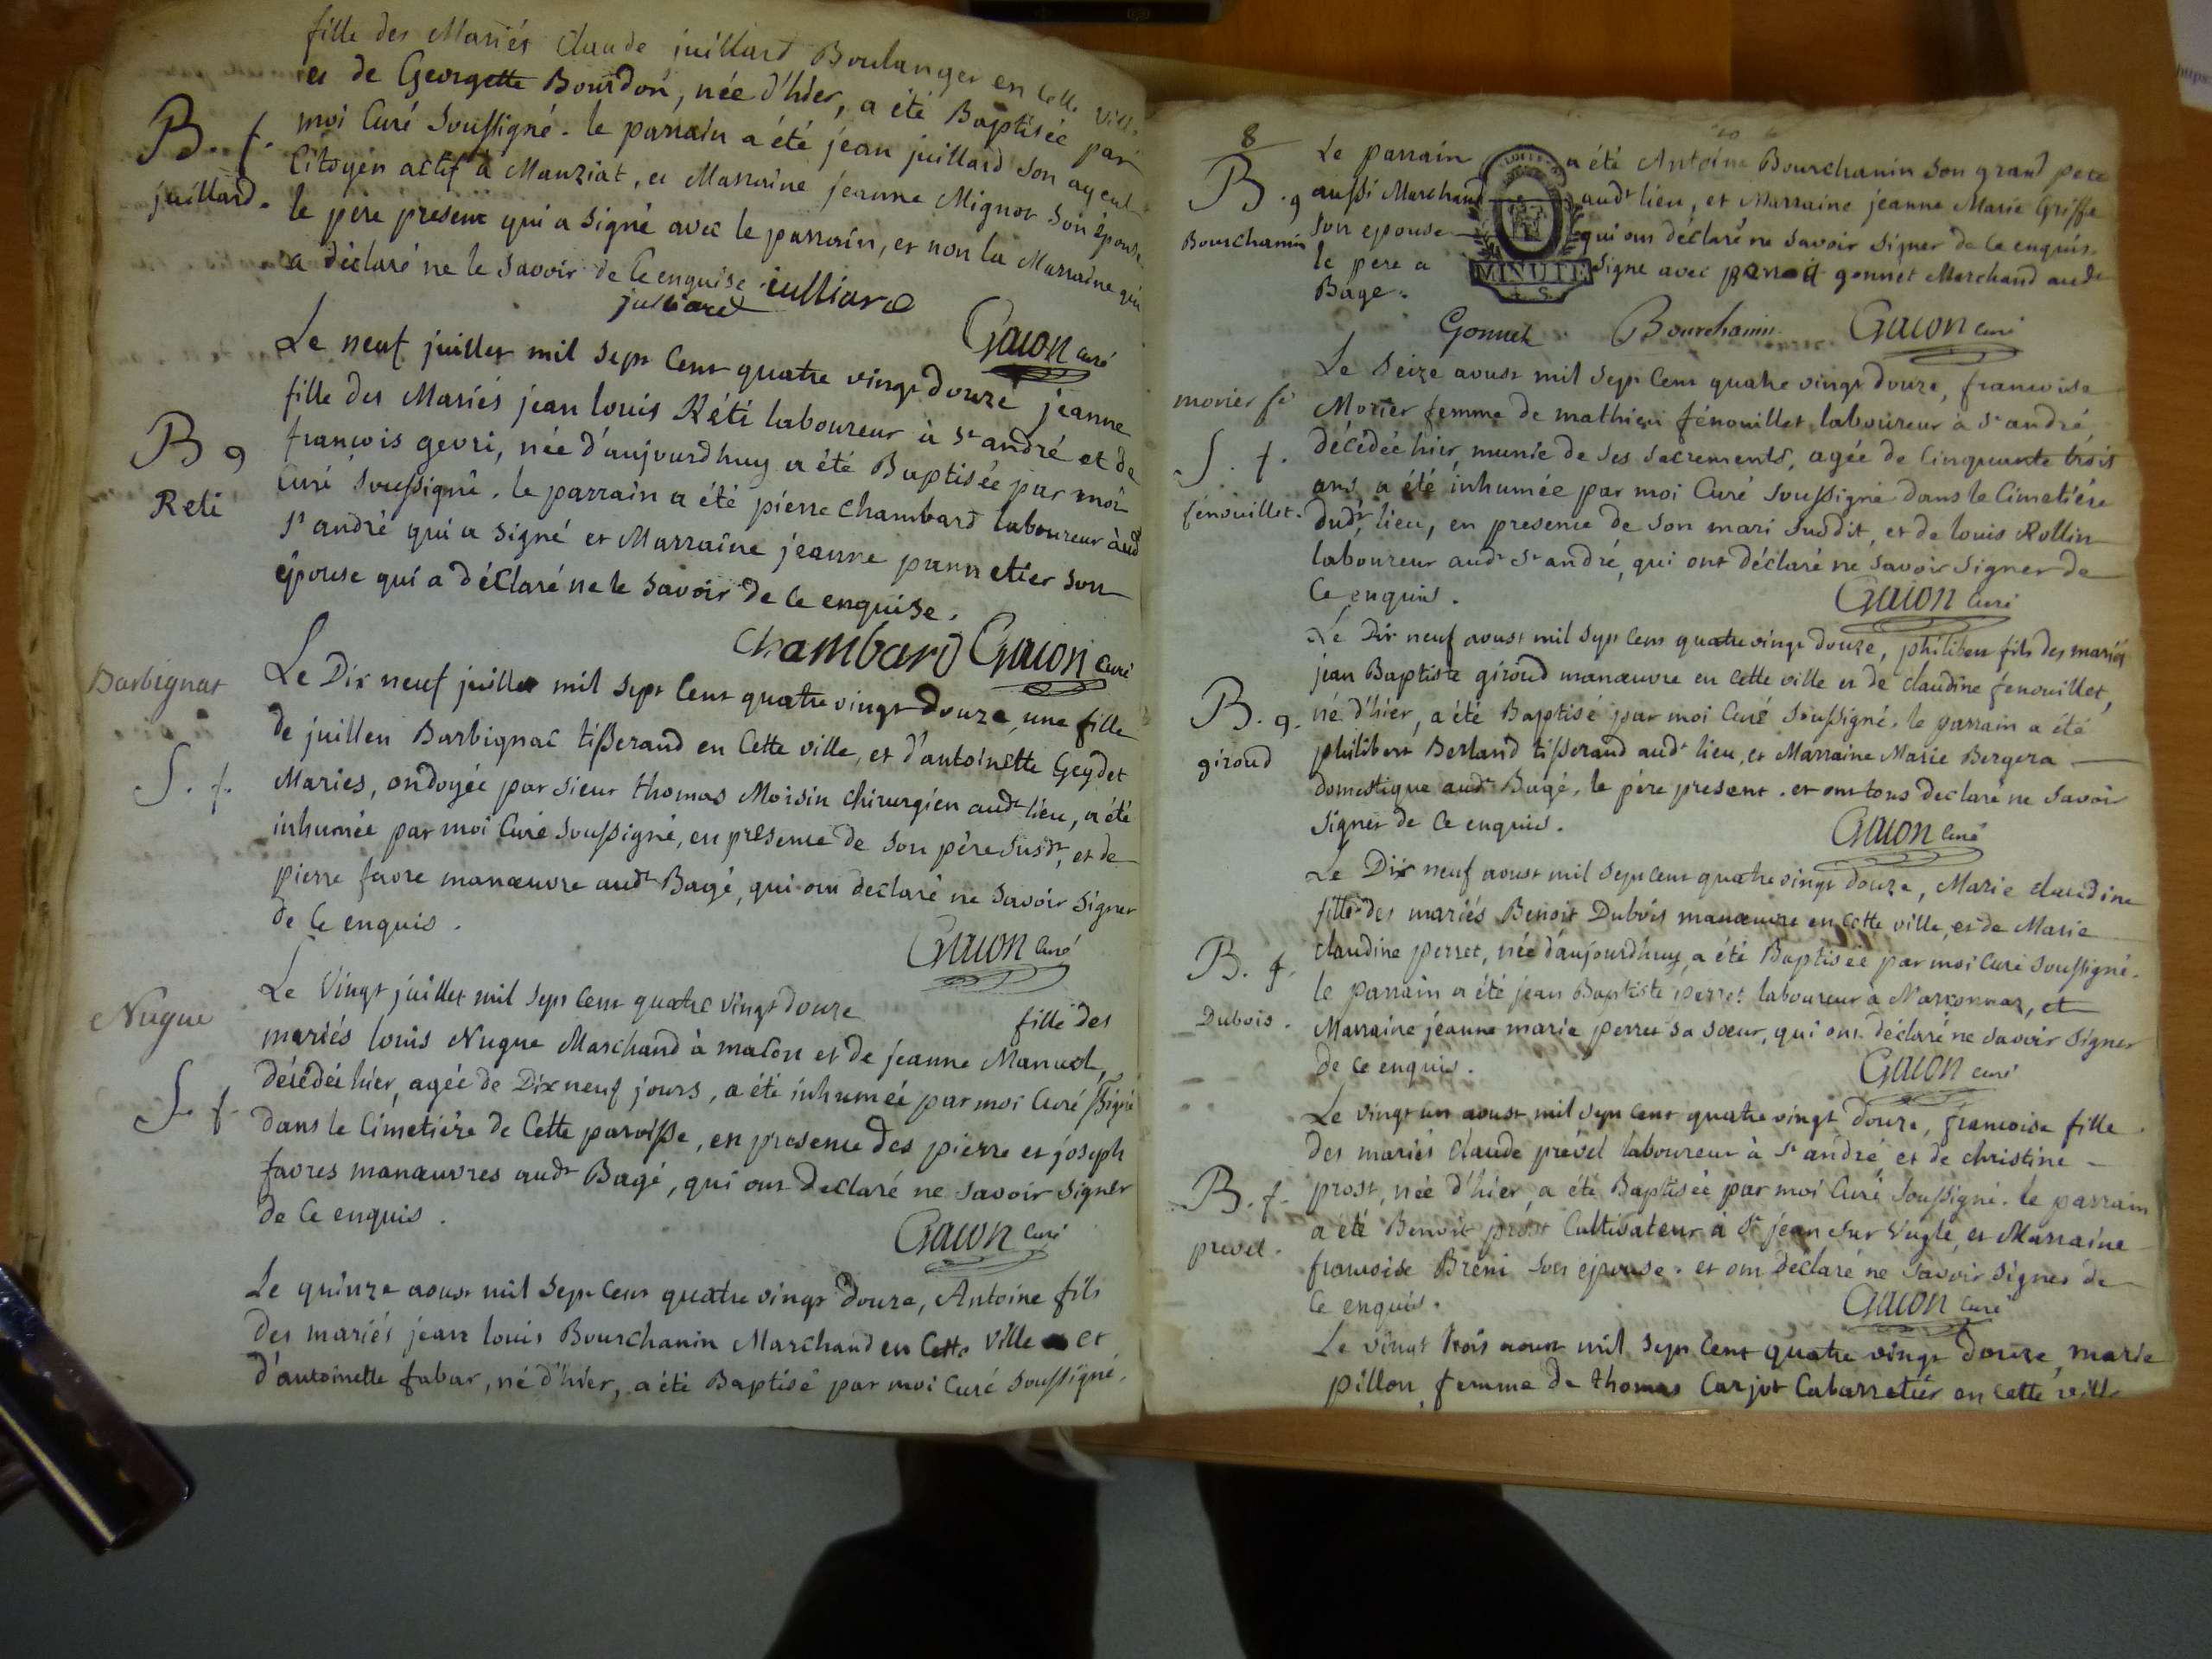 fille des Mariés Claude juillard Boulanger en Cette ville
et de Georgette Bourdon, née d'hier, a été Baptisée par
moi Curé Soussigné. le parrain a été jean juillard son ayeul
Citoyen actif à Manziat, et Marraine jeanne Mignot son épouse
le père present qui a signé avec le parrain, et non la Marraine qui
a déclaré ne le savoir de ce enquise. julliard
julliard
Gacon Curé
B. f.
juillard.
Le neuf juillet mil sept cent quatre vingt douze jeanne
fille des Mariés jean louis Réti laboureur à St andré et de
françois gevri, née d'aujourdhuy a été Baptisée par moi
Curé soussigné. le parrain a été pierre Chambard laboureur aud
St andré qui a signé et Marraine jeanne pannetier son
épouse qui a déclaré ne le savoir de ce enquise.
Chambard Gacon Curé
B g
Reti
Le Dix neuf juillet mil sept cent quatre vingt douze, une fille
de juillen Barbignat tisserand en Cette ville, et d'antoinette Geydet
Maries, ondoyée par sieur thomas Moisin chirurgien audt lieu, a été
inhumée par moi Curé soussigné, en presence de son père susdt, et de
pierre favre manœuvre audt Bagé, qui ont declaré ne savoir signer
de ce enquis.
Gacon Curé
Barbignat
S. f.
Le Vingt juillet mil sept cent quatre vingt douze fille des
mariés louis Nugue Marchand à macon et de jeanne Manuel,
décédée hier, agée de Dix neuf jours, a été inhumée par moi Curé ssigné
dans le Cimetière de Cette paroisse, en presence des pierre et joseph
favres manœuvres audt Bagé, qui ont declaré ne savoir signer
de ce enquis.
Gacon Curé
Nugue
S. f.
Le quinze aoust mil sept cent quatre vingt douze, Antoine fils
des mariés jean louis Bourchanin Marchand en Cette ville et
d'antoinette fabar, né d'hier, a été Baptisé par moi Curé soussigné.
8
Le parrain a été Antoine Bourchanin son grand pere
aussi Marchand audt lieu, et Marraine jeanne Marie Griffe
son epouse qui ont déclaré ne savoir signer de ce enquis.
le pere a signé avec gonnet Marchand audt
Bage.
MINUTE
Gonnet Bourchanin Gacon Curé
B. g
Bourchanin
Le seize aoust mil sept cent quatre vingt douze, francoise
Morier femme de mathieu fénouillet laboureur à St andré,
décédée hier munie de ses sacrements, agée de cinquante trois
ans, a été inhumée par moi Curé soussigné dans le Cimetière
dudt lieu, en presence de son mari susdit, et de louis Rollin
laboureur audt St andré, qui ont déclaré ne savoir signer de
ce enquis.
Gacon Curé
morier fe
S. f.
fénouillet.
Le Dix neuf aoust mil sept cent quatre vingt douze, philibert fils des mariés
jean Baptiste giroud manœuvre en Cette ville et de claudine fenouillet,
né d'hier, a été Baptisé par moi Curé soussigné. le parrain a été
philibert Berland tisserand audt lieu, et Marraine Marie Bergera
domestique audt Bagé, le père present. et ont tous declaré ne savoir
signer de ce enquis.
Gacon Curé
B. g.
giroud
Le Dix neuf aoust mil sept cent quatre vingt douze, Marie claudine
fille des mariés Benoit Dubois manœuvre en Cette ville, et de Marie
claudine perret, née d'aujourdhuy, a été Baptisée par moi Curé soussigné.
le parrain a été jean Baptiste perret laboureur a Marsonnaz, et
Marraine jeanne marie perret sa sœur, qui ont déclaré ne savoir signer
de ce enquis.
Gacon Curé
B. f.
Dubois.
Le vingt un aoust mil sept cent quatre vingt douze, francoise fille
des mariés Claude prével laboureur à St andré et de christine
prost, née d'hier, a été Baptisée par moi Curé soussigné. le parrain
a été Benoit prost Cultivateur à St jean sur Veyle, et Marraine
francoise Breni son épouse. et ont déclaré ne savoir signer de
ce enquis.
Gacon Curé
B. f.
prevel.
Le vingt trois aoust mil sept cent quatre vingt douze, marie
pillon femme de thomas Carjot Cabarretier en cette ville